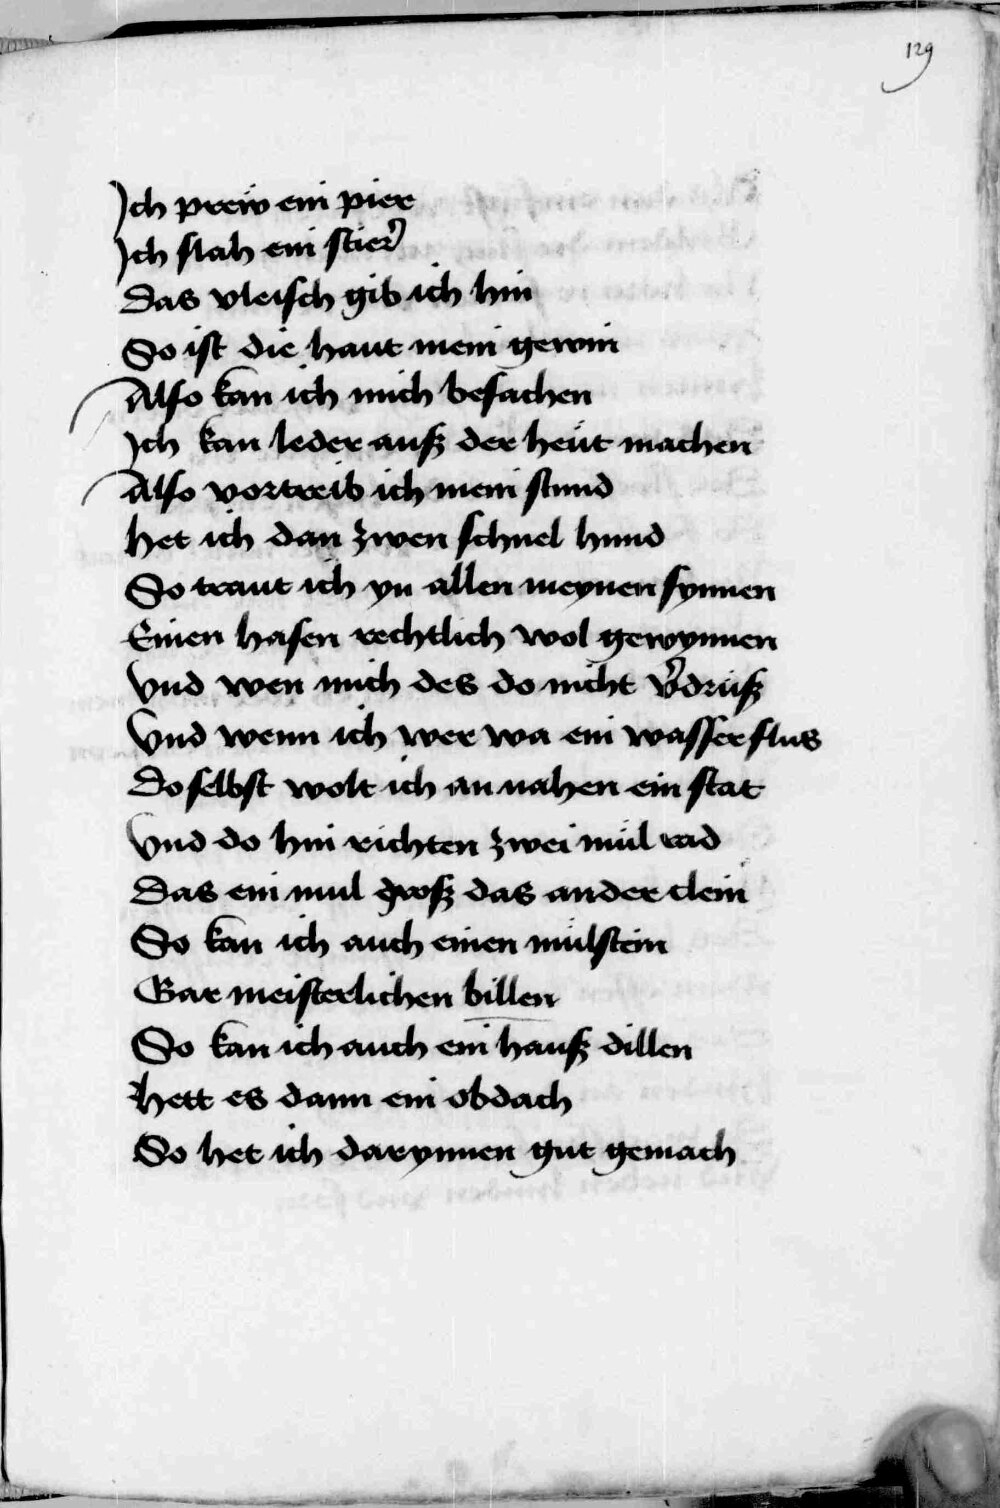 129
Ich prew ein pier
Ich slah ein stier
Das vleisch gib ich hin
So ist die haut mein gewin
Also kan ich mich besachen
Ich kan leder auß der heüt machen
Also vortreib ich mein stund
het ich dan zwen schnel hund
So traut ich yn allen meynen synnen
Einen hasen rechtlich wol gewynnen
Vnd wen mich des do nicht v̉drüß
Vnd wenn ich wer wa ein wasser flus
Do selbst wolt ich an nahen ein stat
Vnd do hin richten zwei mül rad
Das ein mul groß das ander clein
So kan ich auch einen mülstein
Gar meisterlichen billen
So kan ich auch ein hauß dillen
hett es dann ein obdach
So het ich darynnen gut gemach